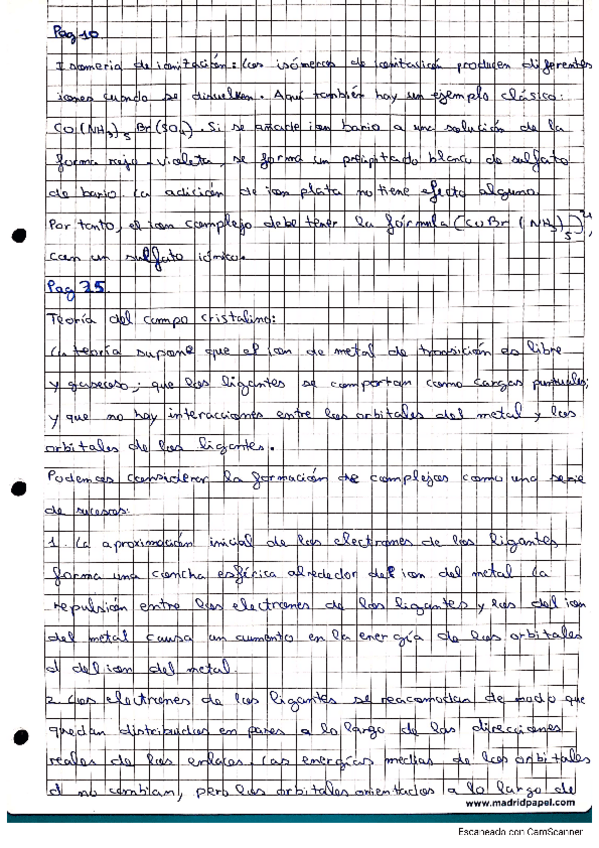 Pag 10
Isomeria de ionización: los isómeros de ionización producen diferentes
iones cuando se disuelven. Aquí también hay un ejemplo clásico:
Co(NH3)5Br(SO4). Si se añade ion bario a una solución de la
forma rojo-violeta, se forma un precipitado blanco de sulfato
de bario. La adición de ion plata no tiene efecto alguno.
Por tanto, el ion complejo debe tener la fórmula (CoBr(NH3)5)
con un sulfato iónico.
Pag 25
Teoría del campo cristalino:
La teoría supone que el ion de metal de transición es libre
y gaseoso; que los ligantes se comportan como cargas puntuales;
y que no hay interacciones entre los orbitales del metal y los
orbitales de los ligantes.
Podemos considerar la formación de complejos como una serie
de sucesos:
1. La aproximación inicial de los electrones de los ligantes
forma una concha esférica alrededor del ion del metal. La
repulsión entre los electrones de los ligantes y los del ion
del metal causa un aumento en la energía de los orbitales
d del ion del metal.
2. Los electrones de los ligantes se reacomodan de modo que
quedan distribuidos en pares a lo largo de las direcciones
reales de los enlaces. Las energías medias de los orbitales
d no cambian, pero los orbitales orientados a lo largo de
www.madridpapel.com
Escaneado con CamScanner